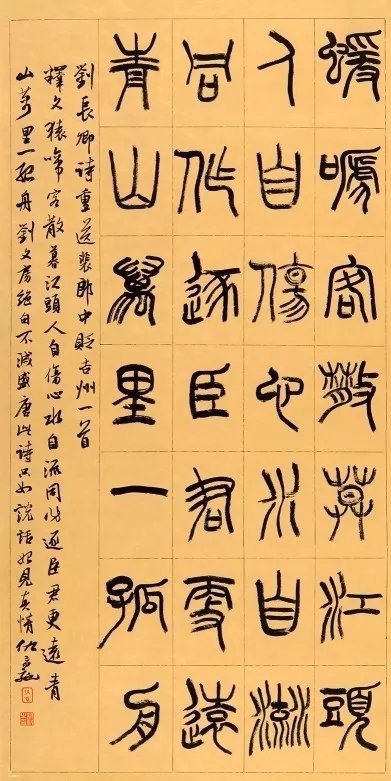 蝯嗁客散莫江頭
人自傷心水自㳅
同作逐臣君更遠
青山萬里一孤舟
劉長卿詩重送裴郎中貶吉州一首
釋文猿啼客散暮江頭人自傷心水自流同作逐臣君更遠青
山萬里一孤舟劉文房絕句不減盛唐此詩只如說話始見真情